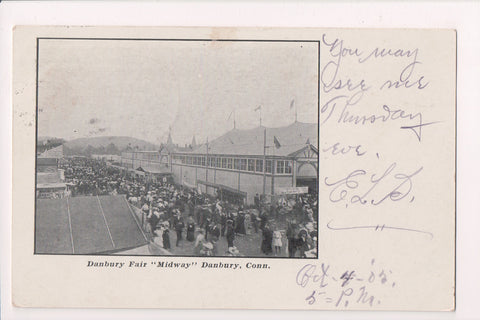 You may
see me
Thursday
eve.
E. L. D.
Danbury Fair "Midway" Danbury, Conn.
Oct - 4 - '05.
5 = P. M.